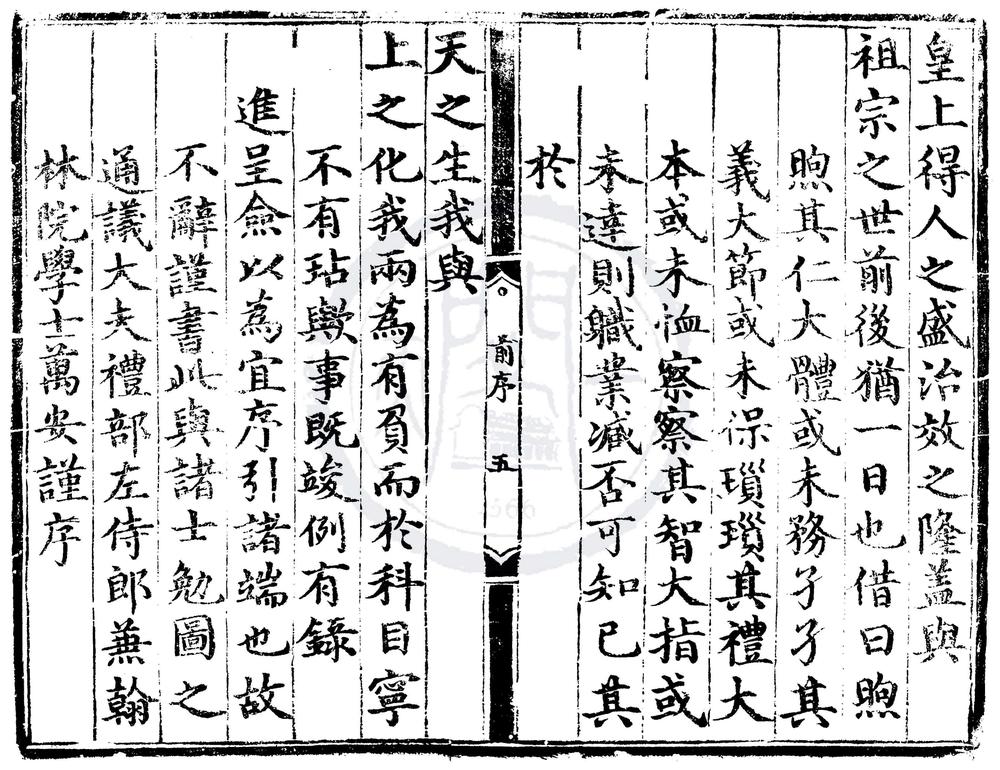 皇上得人之盛治效之隆蓋與
祖宗之世前後猶一日也借曰煦
煦其仁大體或未務孑孑其
義大節或未保瑣瑣其禮大
本或未恤察察其智大指或
未達則職業臧否可知已其
於
前序
五
天之生我與
上之化我兩為有負而於科目寧
不有玷歟事既竣例有錄
進呈僉以為宜序引諸端也故
不辭謹書此與諸士勉圖之
通議大夫禮部左侍郎兼翰
林院學士萬安謹序